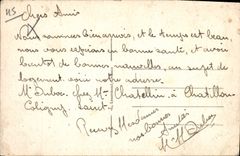 Chers Amis
Nous sommes bien arrivés, et le temps est beau,
nous vous espérons en bonne santé, et avoir
bientôt de bonnes nouvelles, au sujet de
logement, voici notre adresse.
Mr Duboc. chez Mr Chatellin, à Chatillon
Coligny.
nos bonnes
Amitiés
Mr Duboc